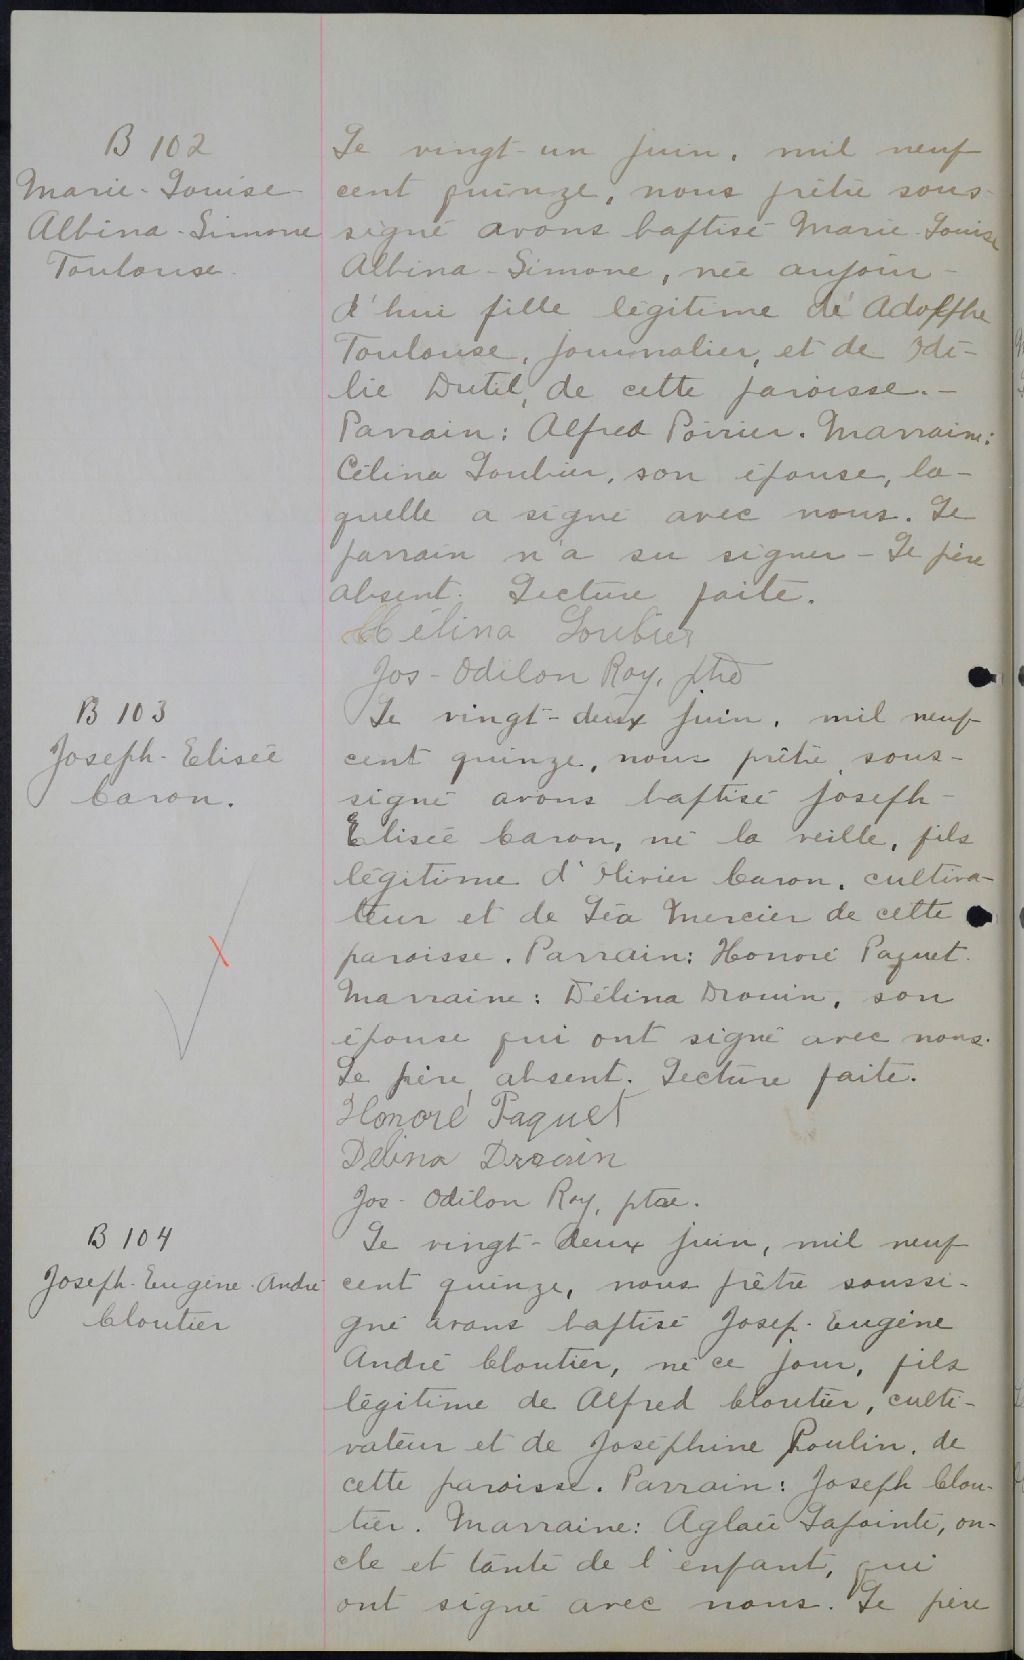 B 102
Marie-Louise-
Albina-Simone
Toulouse.
Le vingt-un juin, mil neuf
cent quinze, nous prêtre sous-
signé avons baptisé Marie-Louise
Albina-Simone, née aujour-
d'hui fille légitime de Adolphe
Toulouse, journalier, et de Odé-
lie Dutil, de cette paroisse.-
Parrain: Alfred Poirier. Marraine:
Célina Loubier, son épouse, la-
quelle a signé avec nous. Le
parrain n'a su signer - Le père
absent. Lecture faite.
Célina Loubier
Jos-Odilon Roy, ptre
B 103
Joseph-Elisée
Caron.
Le vingt-deux juin, mil neuf
cent quinze, nous prêtre sous-
signé avons baptisé Joseph-
Elisée Caron, né la veille, fils
légitime d'Olivier Caron, cultiva-
teur et de Léa Mercier de cette
paroisse. Parrain: Honoré Paquet.
Marraine: Délina Drouin, son
épouse qui ont signé avec nous.
Le père absent. Lecture faite.
Honoré Paquet
Délina Drouin
Jos-Odilon Roy, ptre.
B 104
Joseph-Eugène-André
Cloutier
Le vingt-deux juin, mil neuf
cent quinze, nous prêtre soussi-
gné avons baptisé Josep-Eugène
André Cloutier, né ce jour, fils
légitime de Alfred Cloutier, culti-
vateur et de Joséphine Poulin, de
cette paroisse. Parrain: Joseph Clou-
tier. Marraine: Aglaée Lapointe, on-
cle et tante de l'enfant, qui
ont signé avec nous. Le père